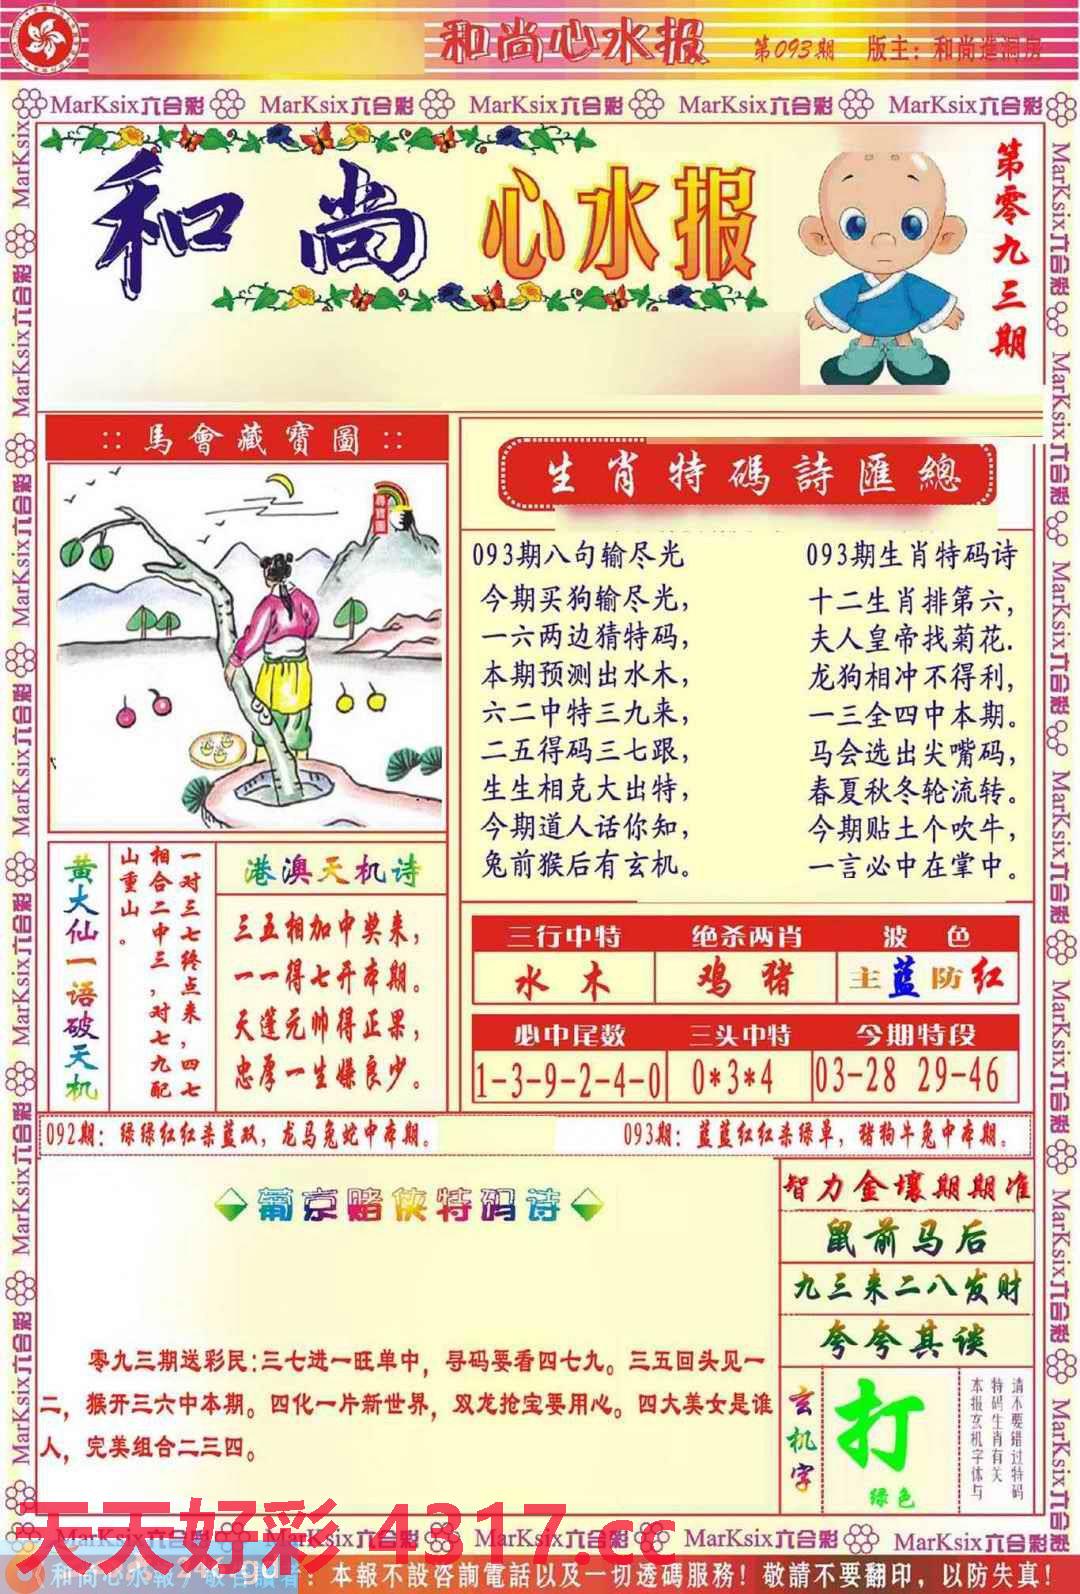 和尚心水报 第093期 版主：和尚進洞房
MarKsix六合彩 MarKsix六合彩 MarKsix六合彩 MarKsix六合彩 MarKsix六合彩
和尚心水报
第零九三期
∷馬會藏寶圖∷
尋寶圖
生肖特碼詩匯總
093期八句输尽光
今期买狗输尽光，
一六两边猜特码，
本期预测出水木，
六二中特三九来，
二五得码三七跟，
生生相克大出特，
今期道人话你知，
兔前猴后有玄机。
093期生肖特码诗
十二生肖排第六，
夫人皇帝找菊花.
龙狗相冲不得利，
一三全四中本期。
马会选出尖嘴码，
春夏秋冬轮流转。
今期贴土个吹牛，
一言必中在掌中。
黄大仙一语破天机
一对三七终点来，四七
相合二中三，对七九配
山重山。
港澳天机诗
三五相加中奖来，
一一得七开本期。
天蓬元帅得正果，
忠厚一生嫌良少。
三行中特 绝杀两肖 波色
水木 鸡猪 主蓝防红
必中尾数 三头中特 今期特段
1-3-9-2-4-0 0*3*4 03-28 29-46
092期：绿绿红红杀蓝双，龙马兔蛇中本期。
093期：蓝蓝红红杀绿单，猪狗牛兔中本期。
葡京赌侠特码诗
零九三期送彩民:三七进一旺单中，寻码要看四七九。三五回头见一
二，猴开三六中本期。四化一片新世界，双龙抢宝要用心。四大美女是谁
人，完美组合二三四。
智力金壤期期准
鼠前马后
九三来二八发财
夸夸其谈
玄机字
打
绿色
请不要错过特码
特码生肖有关
本报玄机字体与
天天好彩 4317.cc
MarKsix六合彩 MarKsix六合彩 MarKsix六合彩 MarKsix六合彩 MarKsix六合彩
和尚心水報 敬告讀者：本報不設咨詢電話以及一切透碼服務！敬請不要翻印，以防失真！